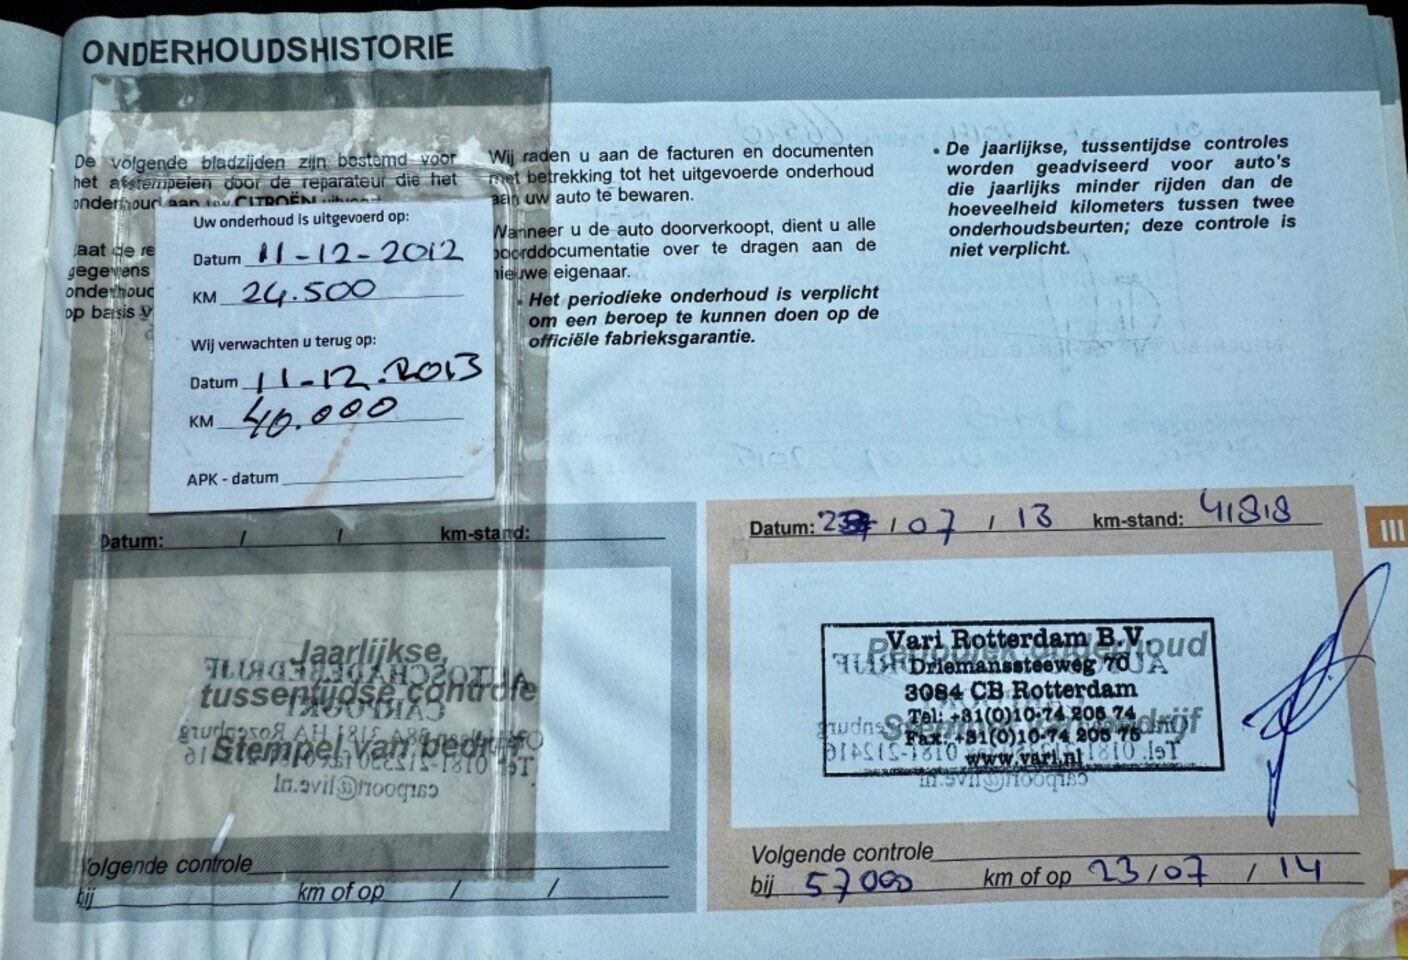 ONDERHOUDSHISTORIE
De volgende bladzijden zijn bestemd voor
het afstempelen door de reparateur die het
onderhoud aan uw CITROËN
aat de re
gegevens
onderhoud
op basis v
Uw onderhoud is uitgevoerd op:
Datum 11-12-2012
KM 24.500
Wij verwachten u terug op:
Datum 11-12.2013
KM 40.000
APK - datum
Wij raden u aan de facturen en documenten
met betrekking tot het uitgevoerde onderhoud
aan uw auto te bewaren.
Wanneer u de auto doorverkoopt, dient u alle
boorddocumentatie over te dragen aan de
nieuwe eigenaar.
• Het periodieke onderhoud is verplicht
om een beroep te kunnen doen op de
officiële fabrieksgarantie.
• De jaarlijkse, tussentijdse controles
worden geadviseerd voor auto's
die jaarlijks minder rijden dan de
hoeveelheid kilometers tussen twee
onderhoudsbeurten; deze controle is
niet verplicht.
Datum: / / km-stand:
Jaarlijkse
tussentijdse controle
Stempel van bedrijf
Volgende controle
bij km of op / /
III
Datum: / 07 / 13 km-stand:
Periodiek onderhoud
Stempel van bedrijf
Vari Rotterdam B.V.
Driemanssteeweg 70
3084 CB Rotterdam
Tel: +31(0)10-74 205 74
Fax: +31(0)10-74 205 75
www.vari.nl
Volgende controle
bij 57000 km of op 23/07 / 14